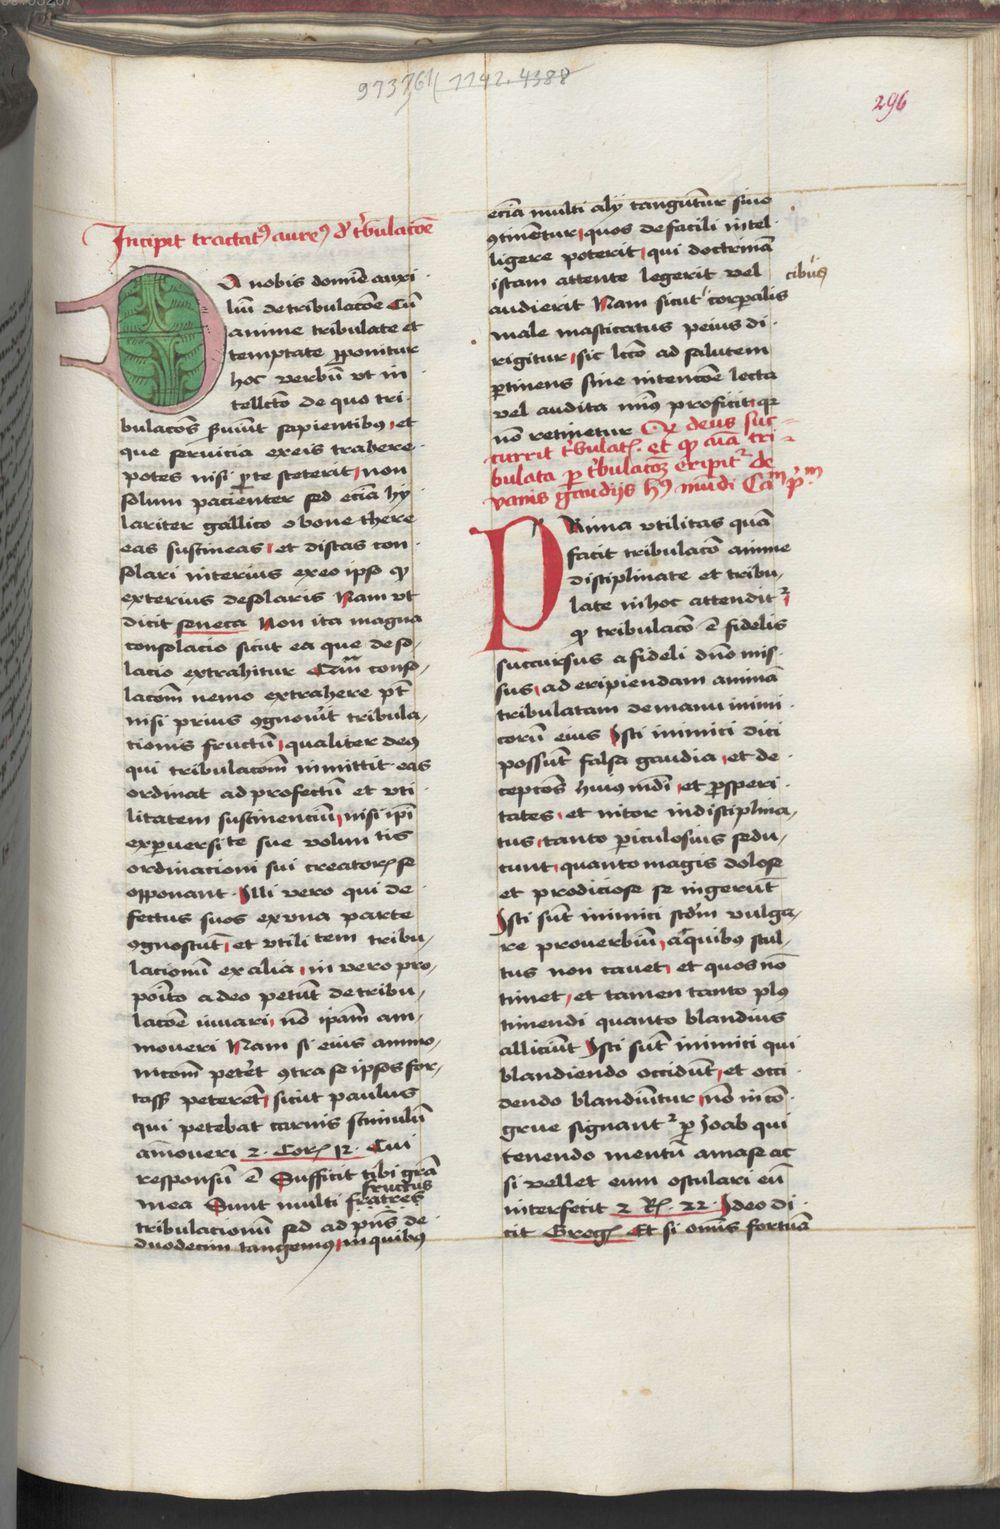 973761 1142. 4388
296
Incipit tractatꝰ aureꝰ de tͥbulacōe
DA nobis domīe auxi
liū de tribulacōe Cū
anime tribulate et
temptate ꝓponitur
hoc verbū vt in
tellcō de quo tri
bulacōs ẜuiūt sapientibus et
que seruicia ex eis trahere
potes nisi ꝑ te steterit non
solum pacienter sed eciā hy
lariter gallico o bone
eas sustineas et discas con
solari interius ex eo ipso qͥ
exterius desolaris Nam vt
dicit seneca Non ita magna
consolacio sicut ea que deso
lacio extrahitur Quā conso
lacōm nemo extrahere pōt
nisi prius ꝯgnouīt tribula
tionis fructū qualiter deꝰ
qui tribulacōm inmittit eas
ordinat ad profectū et vti
litatem sustinenciū nisi ipī
ex peruersite sue volun tis
ordinacioni sui creatorꝭ se
opponant Illi vero qui de
fectus suos ex vna parte
ꝯgnoscūt et vtili tem tribu
lacionū ex alia in vero pro
poīto adeo petūt de tribu
lacōe iuuari nō ipam am
moueri Nam si eius ammo
nicōm peteret ꝯtra se ipsos for
tass peterēt sicut paulus
qui petebat carnis stimulū
amoueri 2. Corꝭ 12. Cui
responsū ē Sufficit tibi grā
fructus
mea Sunt multi fratres
tribulacionū sed ad pn̄s de
duodecim tangemꝰ in quibꝰ
eciā multi alij tangūtur siue
ꝯtinētur quos de facili intel
ligere poterit qui doctrinā
istam attente legerit vel
cibus
audierit Nam sicut corꝑalis
male masticatus peius di
rigitur sic lcō ad salutem
ꝑtinens sine intencōe lecta
vel audita minꝰ proficit qꝛ
nō retinetur Qꝛ deus suc
currit tͥbulatꝭ. et qͥ aīa tri
bulata ꝑ tͥbulacōꝫ eripitᷣ de
vanis gaudijs hꝰ mūdi Cam pͥm
PRima vtilitas quā
facit tribulacō anime
disciplinate et tribu
late in hoc attenditᷣ
qͥ tribulacō ē fidelis
succursus a fideli dn̄o mis
sus ad eripiendam animā
tribulatam de manu inimi
corū eius Isti inimici dici
possūt falsa gaudia et de
cepcōes huiꝰ mūdi et ꝓsperi
tates et nitor indisciplina
tus tanto ꝑiculosius sedu
cunt quanto magis dolose
et prodiciose se ingerūt
Isti sūt inimici scdm vulga
re proverbiū a quibꝰ stul
tus non cauet et quos nō
timet et tamen tanto plꝰ
timendi quanto blandius
alliciūt Isti sūt inimici qui
blandiendo occidūt et occi
dendo blandiūtur nō incō
grue signantᷣ ꝑ Joab qui
tenendo mentū amase ac
si vellet eum osculari eū
interfecit 2 Rꝭ. 22. Ideo di
cit Gregꝭ Et si omīs fortuā